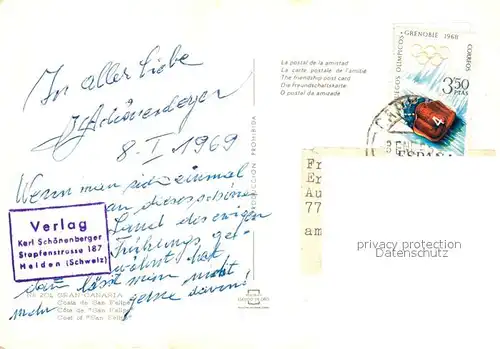 In aller Liebe
8-I 1969
Wenn man sich einmal
an dieses schöne
Land des ewigen
Frühlings ge-
wöhnt hat
dann lässt man nicht
mehr gerne davon!
Verlag
Karl Schönenberger
Stapfenstrasse 187
Heiden (Schweiz)
GRAN CANARIA
Costa de San Felipe
Côte de "San Felipe"
Cost of "San Felipe"
PRODUCCION PROHIBIDA
La postal de la amistad
La carte postale de l'amitié
The friendship post card
Die Freundschaftskarte
O postal da amizade
JUEGOS OLIMPICOS - GRENOBLE 1968
CORREOS
3,50
PTAS
4
ESPAÑA
Fr
Er
Au
77
am
privacy protection
Datenschutz